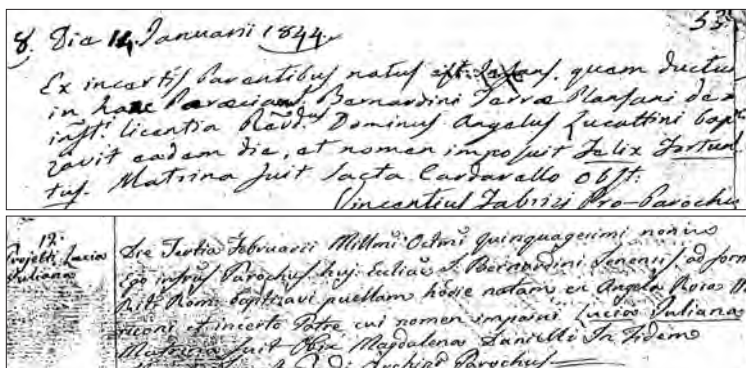 53.
8. Dia 14. Januarii 1844.
Ex incertis Parentibus natus est Infans, quem ductus
in hanc Paraeciam Bernardini Terrae Plansani de
infti licentia Rd.us Dominus Angelus Lucattini bap
zavit eadem die, et nomen imposuit Felix Fortun
tus. Matrina fuit Sacta Cardarello Obst.
Vincentius Fabrizi Pro-Parochus
12. Die Tertia Februarii Millmi Octmi quinquagesimi nonivo
Projetti Lucia Ego infrus Parochus huj: Eccliae S. Bernardini Senensis ad form
Juliana Rit. Rom: baptizavi puellam hodie natam ex Angela Rosa
riconi et incerto Patre cui nomen imposui Lucia Juliana
Matrina fuit Obix Magdalena Danielli In Fidem
Archipr Parochus